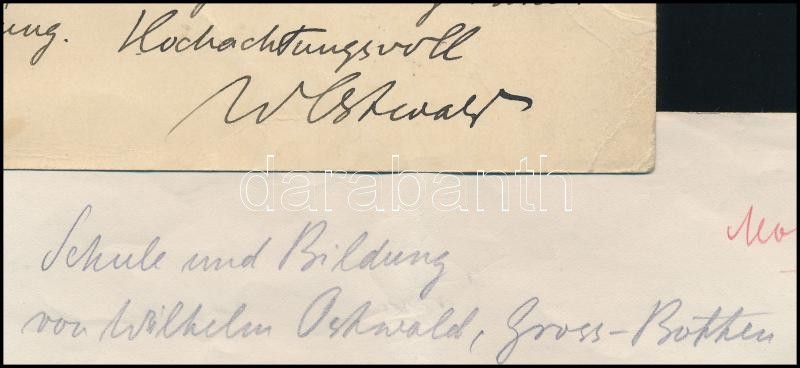 ung. Hochachtungsvoll
WOstwald
darabanth
Schule und Bildung
von Wilhelm Ostwald, Gross-Bothen